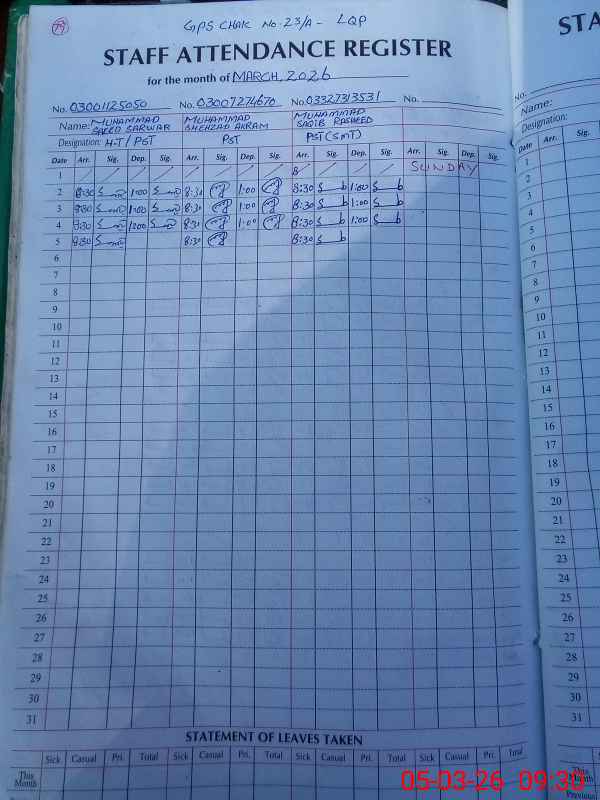 79
GPS CHAK No. 23/A - LQP
STAFF ATTENDANCE REGISTER
for the month of MARCH, 2026
No. 03001125050 No. 03007274670 No. 03327313531 No.
Name: MUHAMMAD SAEED SARWAR MUHAMMAD SHEHZAD AKRAM MUHAMMAD SAQIB RASHEED
Designation: H-T / PST PST PST (SMT)
Date Arr. Sig. Dep. Sig. Arr. Sig. Dep. Sig. Arr. Sig. Dep. Sig. Arr. Sig. Dep. Sig.
1 SUNDAY
2 8:30 1:00 8:30 1:00 8:30 1:00
3 8:30 1:00 8:30 1:00 8:30 1:00
4 8:30 1:00 8:30 1:00 8:30 1:00
5 8:30 8:30 8:30
6
7
8
9
10
11
12
13
14
15
16
17
18
19
20
21
22
23
24
25
26
27
28
29
30
31
STATEMENT OF LEAVES TAKEN
Sick Casual Pri. Total Sick Casual Pri. Total Sick Casual Pri. Total Sick Casual Pri. Total
This Month
STA
No.
Name:
Designation:
Date Arr. Sig.
1
2
3
4
5
6
7
8
9
10
11
12
13
14
15
16
17
18
19
20
21
22
23
24
25
26
27
28
29
30
31
Sick
This Month
Previous
05-03-26 09:30